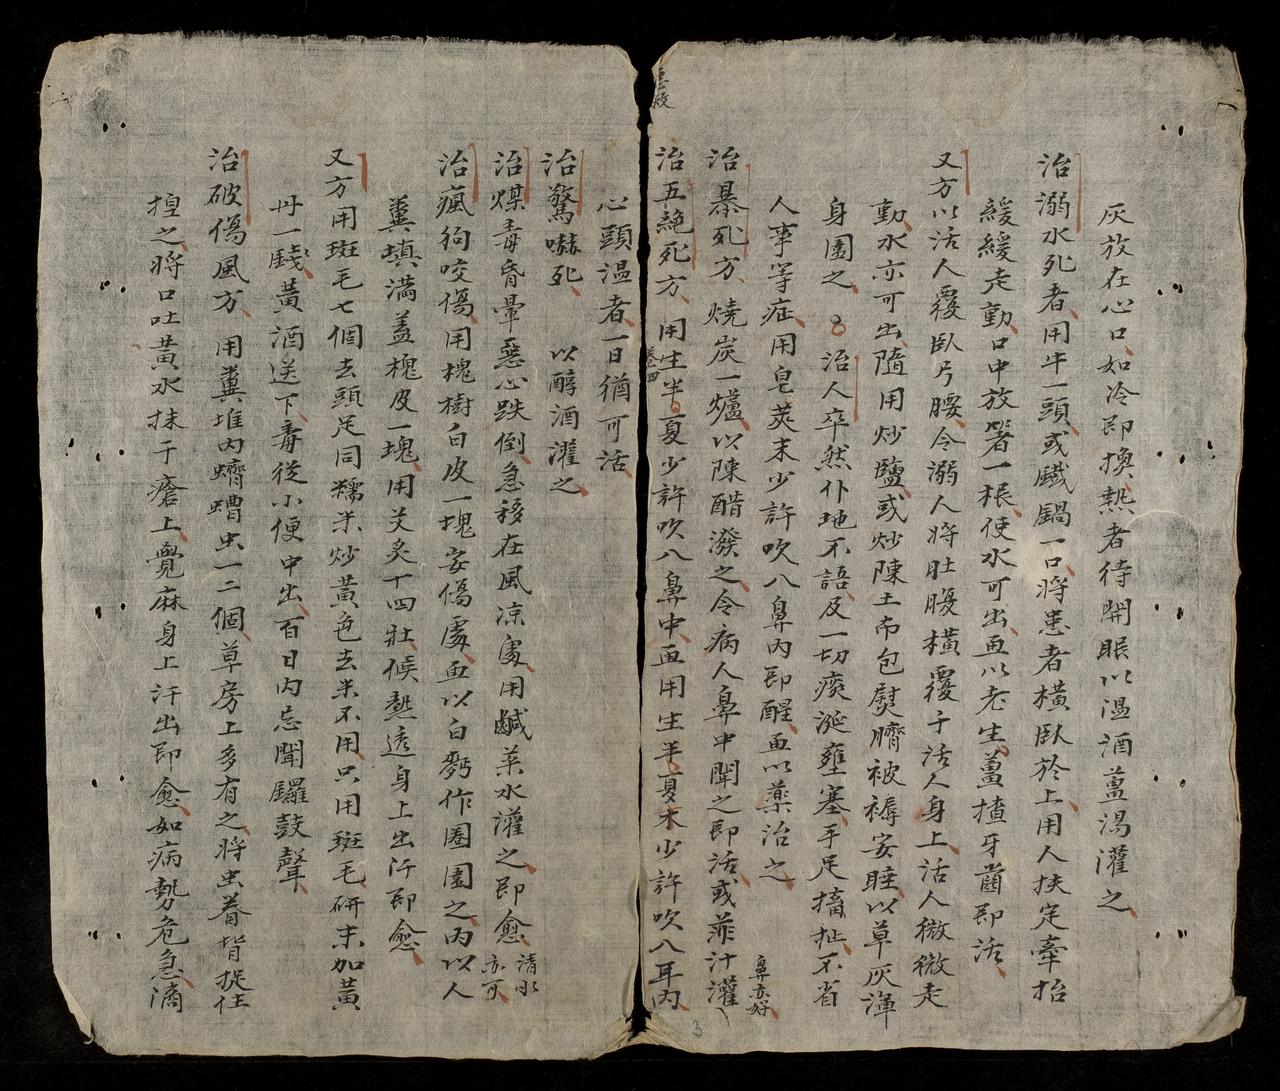 灰放在心口如冷即換熱者待開眼以温酒薑湯灌之
治溺水死者用牛一頭或鐵鍋一口將患者横臥於上用人扶定牽抬
緩緩走動口中放箸一根使水可出再以老生薑揸牙齒即活
又方以活人覆臥弓腰令溺人將肚腹横覆于活人身上活人微微走
動水亦可出隨用炒鹽或炒陳土布包熨臍被褥安睡以草灰渾
身圍之 治人卒然仆地不語及一切痰涎壅塞手足搐扯不省
人事等症用皂莢末少許吹入鼻内即醒再以藥治之
治暴死方燒炭一爐以陳醋潑之令病人鼻中聞之即活或韮汁灌
鼻亦好
治五絶死方用生半夏少許吹入鼻中再用生半夏末少許吹入耳内
卷四
心頭温者一日猶可活
治驚嚇死 以醇酒灌之
治煤毒昏暈惡心跌倒急移在風凉處用鹹菜水灌之即愈清水亦可
治瘋狗咬傷用槐樹白皮一塊安傷處再以白麪作圈圍之内以人
糞填滿蓋槐皮一塊用艾炙十四壯候熱透身上出汗即愈
又方用斑毛七個去頭足同糯米炒黄色去米不用只用斑毛研末加黄
丹一錢黄酒送下毒從小便中出百日内忌聞鑼鼓聲
治破傷風方用糞堆内蠐螬虫一二個草房上多有之將虫脊背捉住
揑之將口吐黄水抹于瘡上覺麻身上汗出即愈如病勢危急滴
3